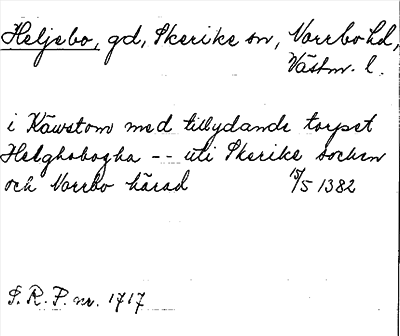 Heljebo, gd, Skerike sn, Norrbo hd,
Västm. l.
i Käwstom med tillydande torpet
Helghabogha -- uti Skerike socken
och Norrbo härad 15/5 1382
S. R. P. nr. 1717